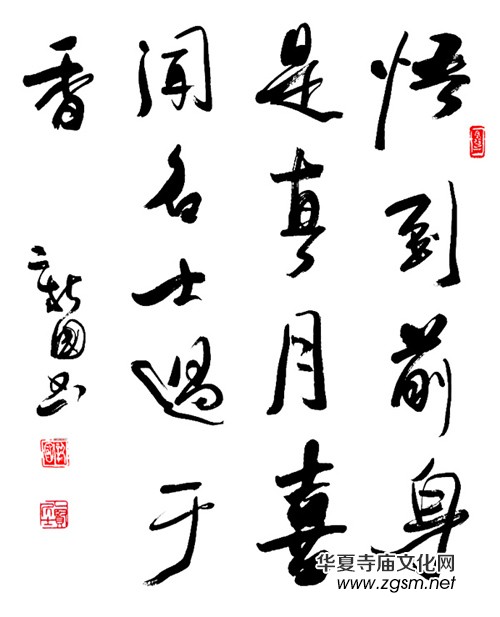 悟到前身
是真月喜
闻名士過于
香
國书
华夏寺庙文化网
www.zgsm.net